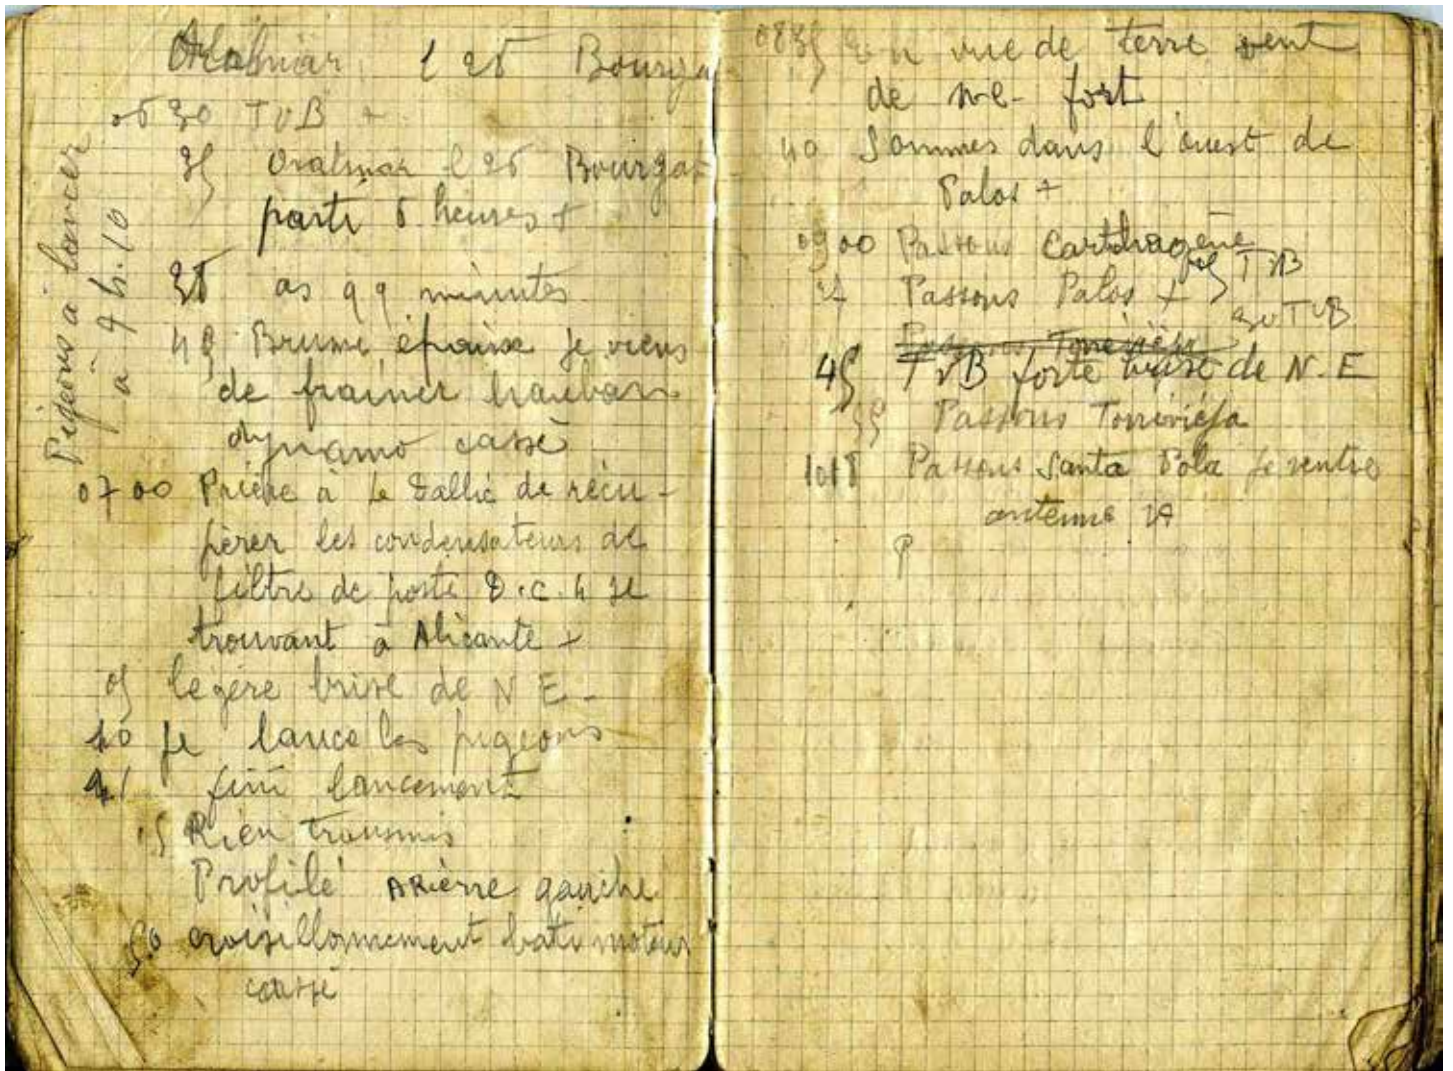 Oralmar l 26 Bourga
0630 TVB +
35 Oralmar l 26 Bourgat
parti 6 heures +
38 as 99 minutes
45 Brume épaisse je viens
de frainer hauban
dynamo cassé
Pigeons à lancer
à 7 h. 10
0700 Prière à Le Dallic de récu-
pérer les condensateurs de
filtre de poste D.C.h se
trouvant à Alicante +
05 légère brise de N E -
10 Je lance les pigeons
11 fini lancement
15 Rien transmis
Profilé ARièrre gauche
50 croisillonnement bati moteur
cassé
0835 En vue de terre vent
de NE- fort
40 Sommes dans l'ouest de
Palos +
0900 Passons Carthagène
27 Passons Palos +
TVB
30 TVB
Passons Torrevieja
45 TVB forte brise de N-E
55 Passons Torrévieja
1018 Passons Santa Pola je rentre
antenne
P